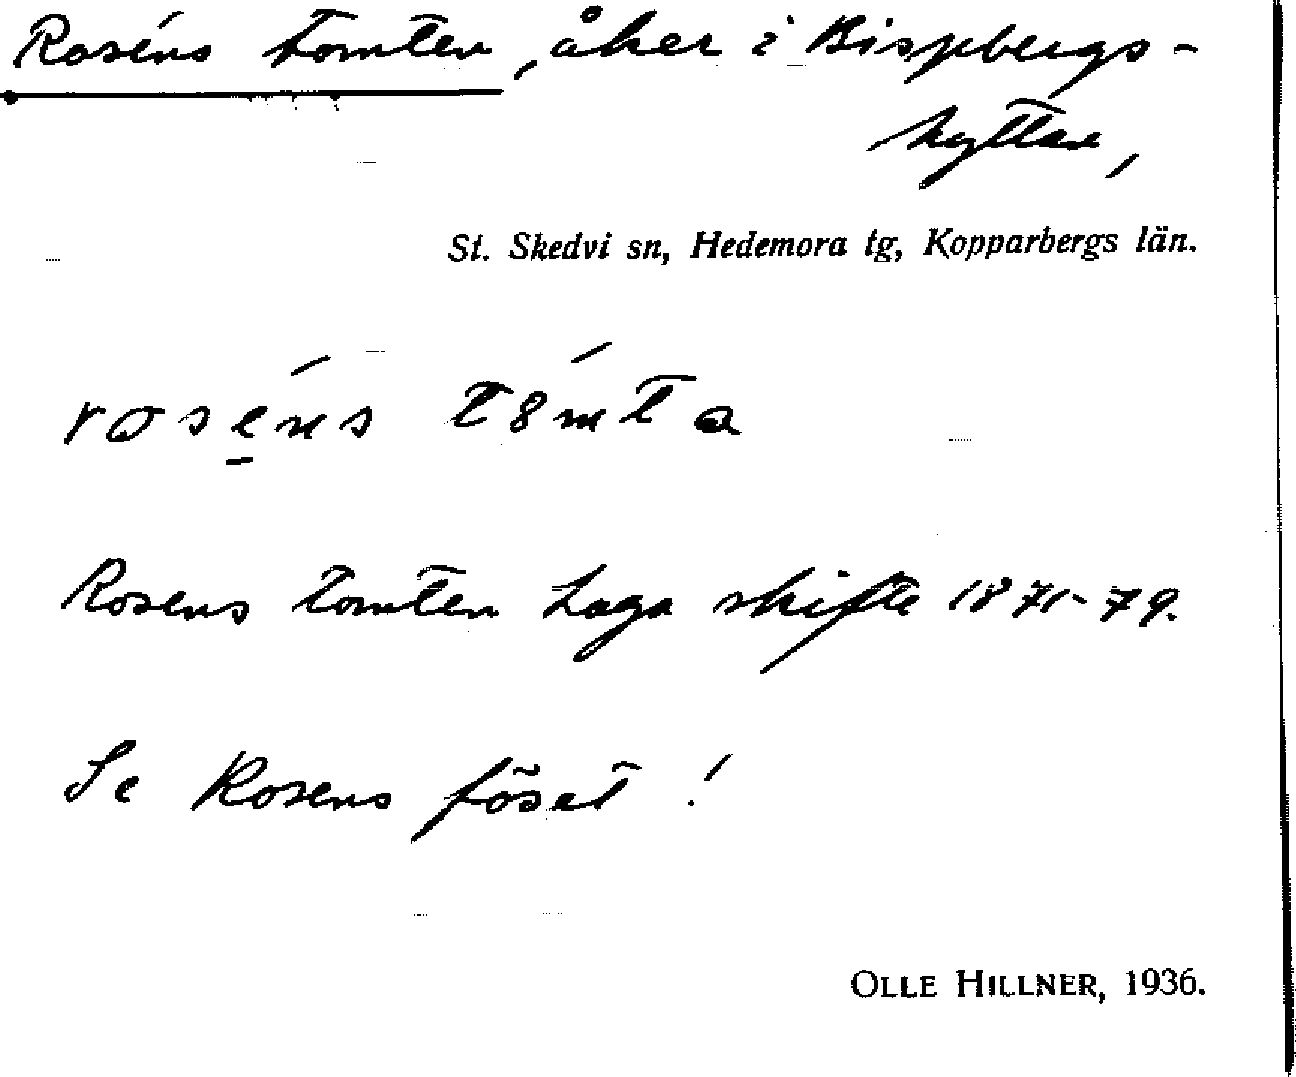 Roséns tomten, åker i Bispbergs-
hyttan,
St. Skedvi sn, Hedemora tg, Kopparbergs län.
rosé̱ns t8́mta
Rosens tomten Laga skifte 1871-79.
Se Rosens föset!
OLLE HILLNER, 1936.